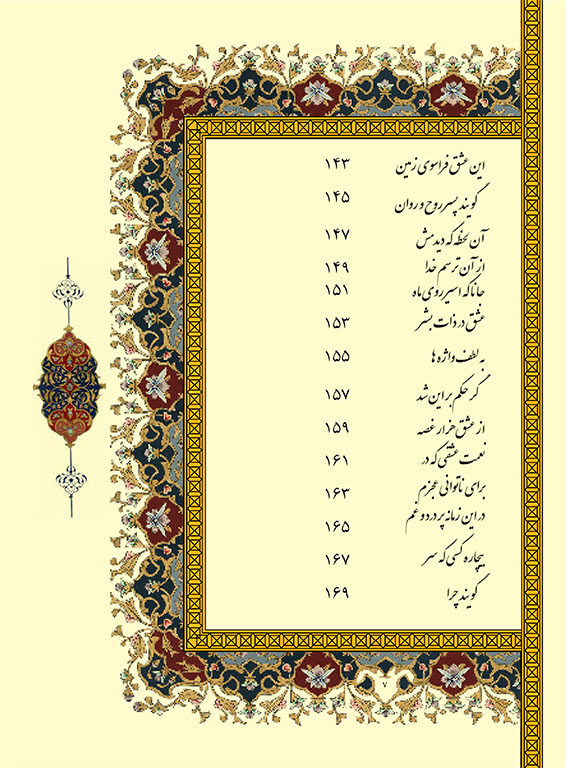 این عشق فراسوی زمین ۱۴۳
گویند پسر روح و روان ۱۴۵
آن لحظه که دیدمش ۱۴۷
از آن ترسم خدا ۱۴۹
جانا که اسیر روی ماه ۱۵۱
عشق در ذات بشر ۱۵۳
به لطف واژه ها ۱۵۵
گر حکم بر این شد ۱۵۷
از عشق هزار غصه ۱۵۹
نعمت عشقی که در ۱۶۱
برای ناتوانی عجزم ۱۶۳
در این زمانه پر درد و غم ۱۶۵
بیچاره کسی که سر ۱۶۷
گویند چرا ۱۶۹
۲